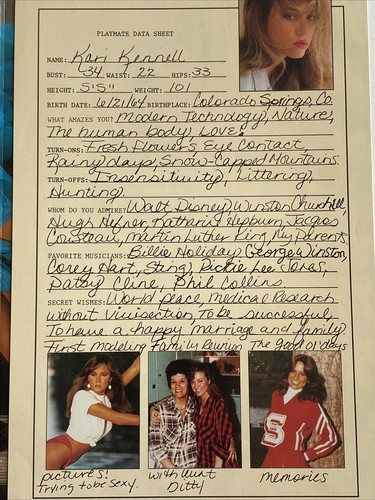 PLAYMATE DATA SHEET
NAME: Kari Kennell
BUST: 34 WAIST: 22 HIPS: 33
HEIGHT: 5'5" WEIGHT: 101
BIRTH DATE: 6/21/64 BIRTHPLACE: Colorado Springs, Co.
WHAT AMAZES YOU? Modern Technology, Nature,
The human body, LOVE!
TURN-ONS: Fresh Flowers, Eye Contact,
Rainy days, Snow-Capped Mountains
TURN-OFFS: Insensitivity, Littering,
Hunting
WHOM DO YOU ADMIRE? Walt Disney, Winston Churchill,
Hugh Hefner, Katharine Hepburn, Jacques
Cousteau, Martin Luther King, My Parents
FAVORITE MUSICIANS: Billie Holiday, George Winston,
Corey Hart, Sting, Rickie Lee Jones,
Patsy Cline, Phil Collins
SECRET WISHES: World peace, Medical Research
without Vivisection, To be successful,
To have a happy marriage and family
First modeling Family Reunion The good ol' days
S
pictures! with Aunt memories
Trying to be sexy. Ditty